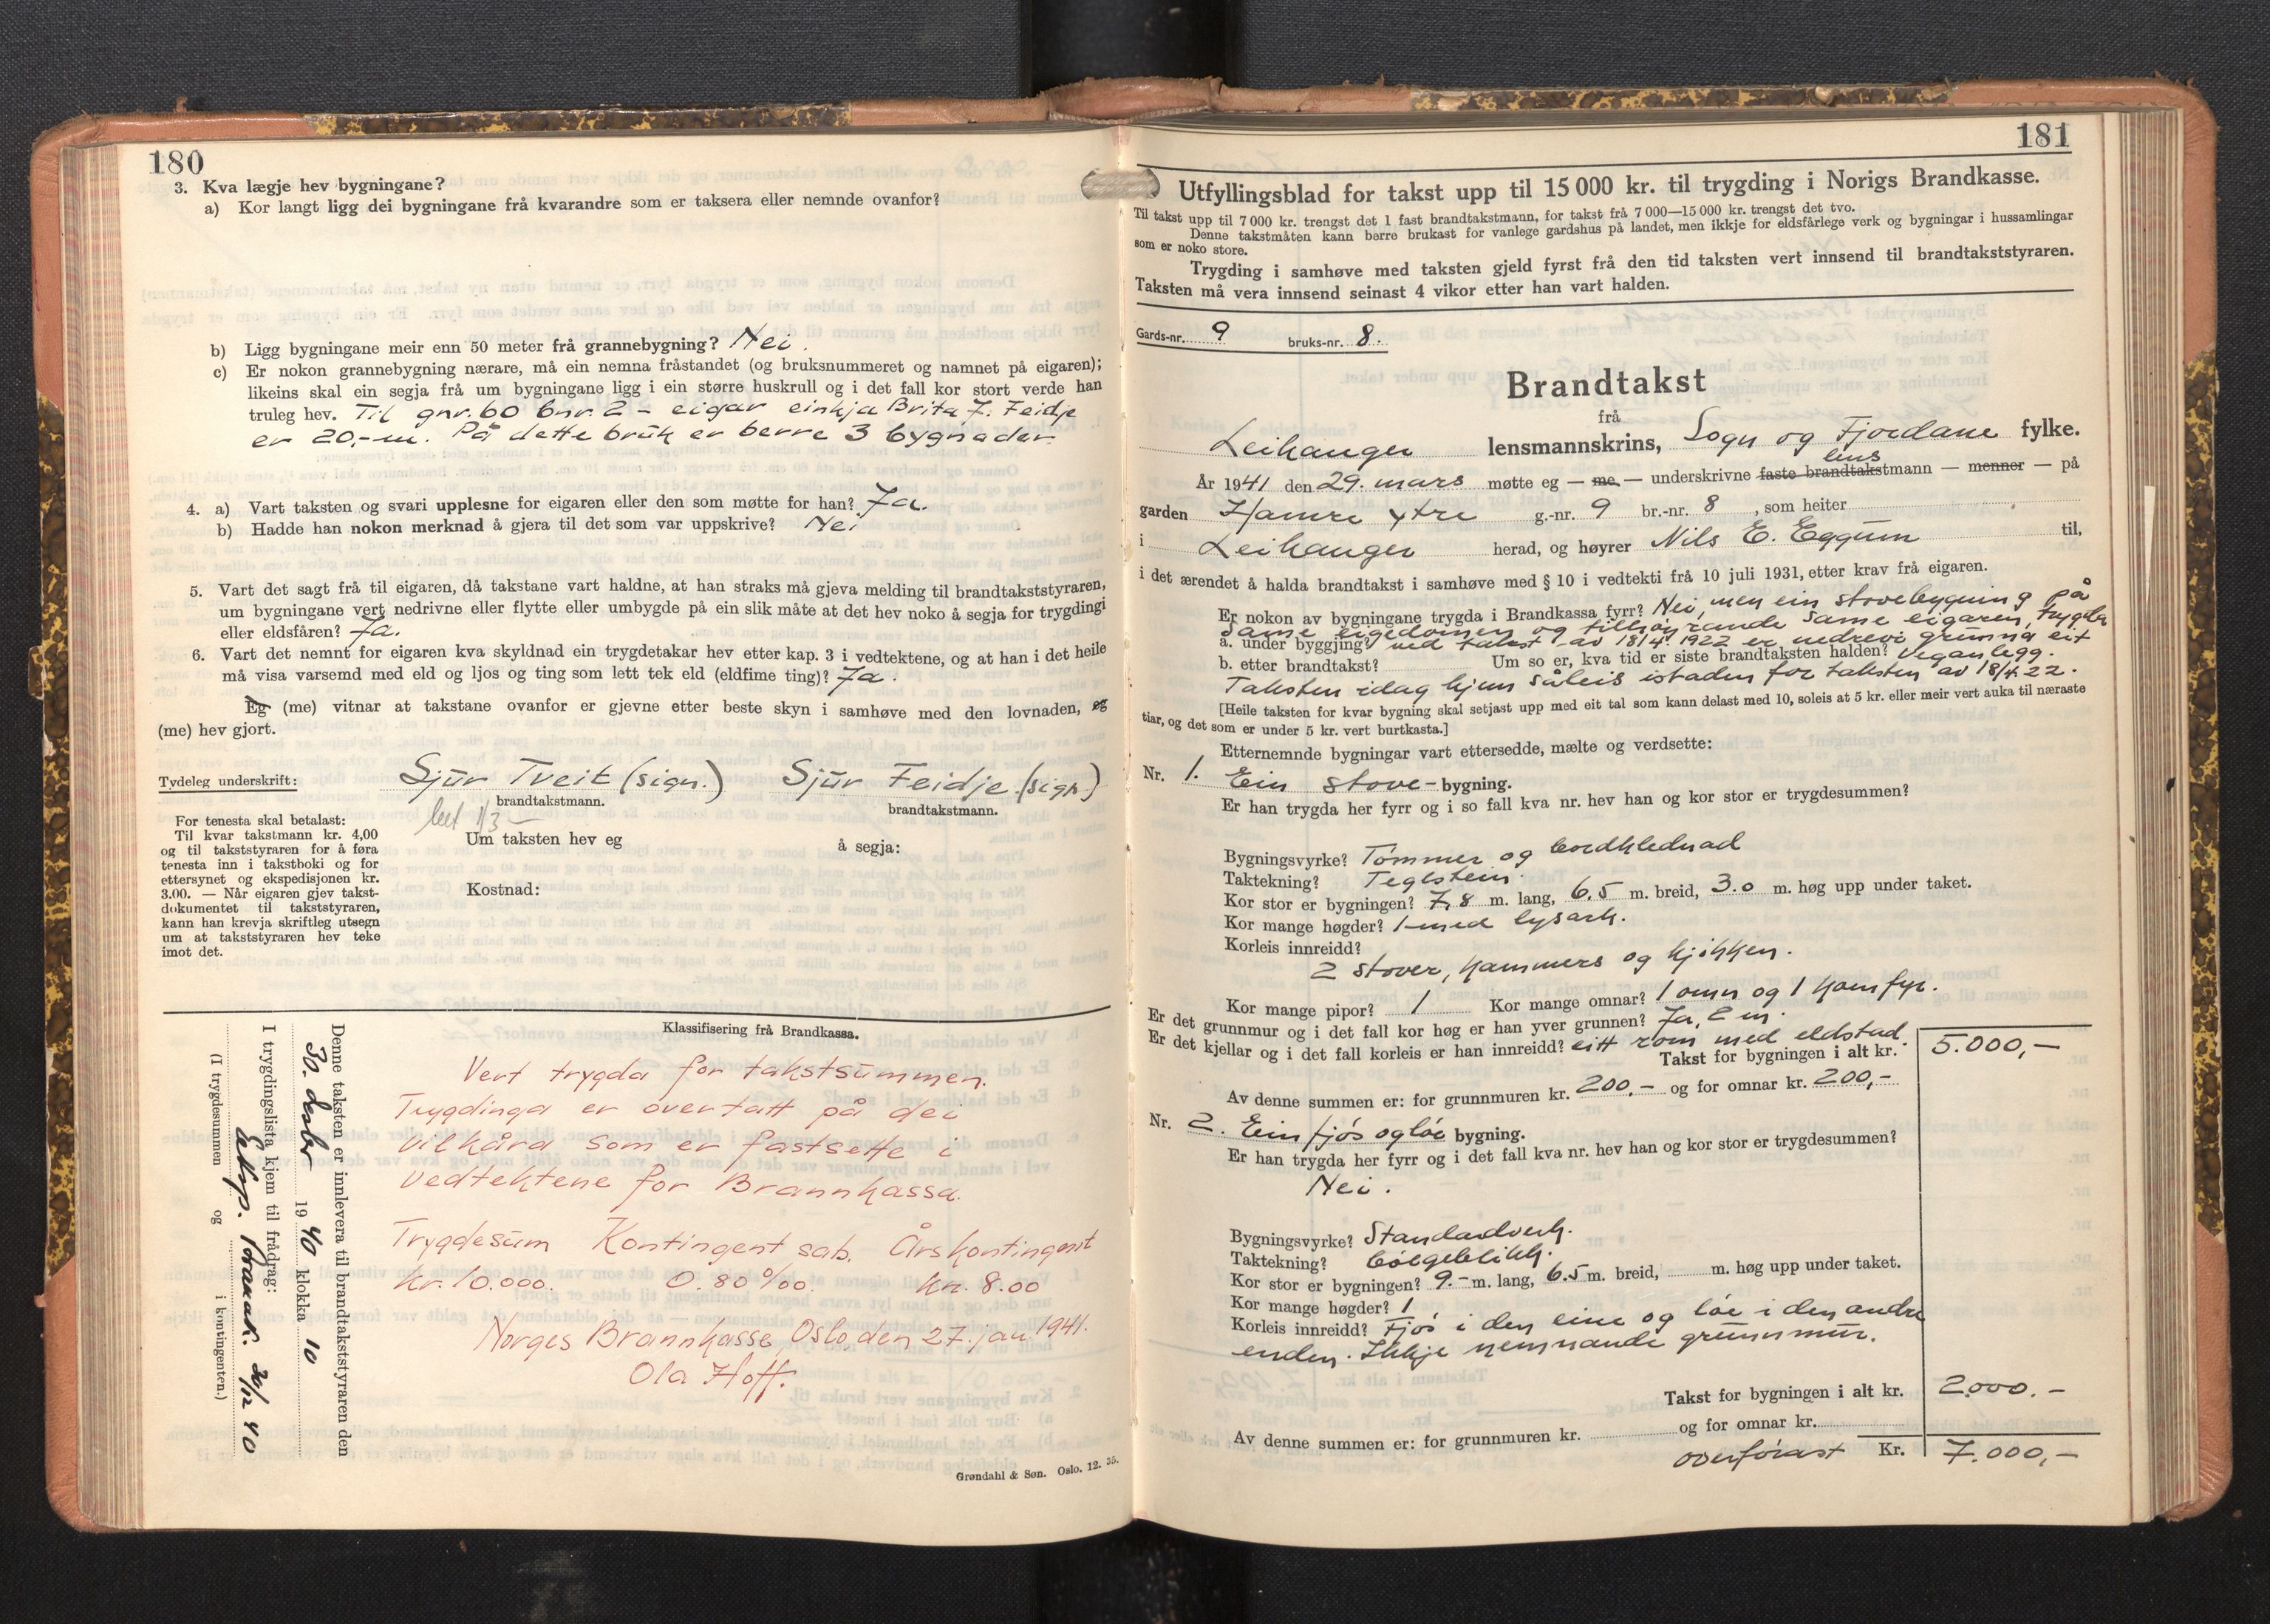 180
3. Kva lægje hev bygningane?
a) Kor langt ligg dei bygningane frå kvarandre som er taksera eller nemnde ovanfor?
b) Ligg bygningane meir enn 50 meter frå grannebygning? Nei.
c) Er nokon grannebygning nærare, må ein nemna fråstandet (og bruksnummeret og namnet på eigaren);
likeins skal ein segja frå um bygningane ligg i ein større huskrull og i det fall kor stort verde han
truleg hev. Til gnr. 60 bnr. 2 - eigar einkja Brita J. Feidje
er 20,- m. På dette bruk er berre 3 bygnader.
4. a) Vart taksten og svari upplesne for eigaren eller den som møtte for han? Ja.
b) Hadde han nokon merknad å gjera til det som var uppskrive? Nei
5. Vart det sagt frå til eigaren, då takstane vart haldne, at han straks må gjeva melding til brandtakststyraren,
um bygningane vert nedrivne eller flytte eller umbygde på ein slik måte at det hev noko å segja for trygdingi
eller eldsfåren? Ja.
6. Vart det nemnt for eigaren kva skyldnad ein trygdetakar hev etter kap. 3 i vedtektene, og at han i det heile
må visa varsemd med eld og ljos og ting som lett tek eld (eldfime ting)? Ja.
Eg (me) vitnar at takstane ovanfor er gjevne etter beste skyn i samhøve med den lovnaden, eg
(me) hev gjort.
Tydeleg underskrift: Sjur Tveit (sign.) Sjur Feidje (sign.)
brandtakstmann. brandtakstmann.
For tenesta skal betalast:
Til kvar takstmann kr. 4,00
og til takststyraren for å føra
tenesta inn i takstboki og for
ettersynet og ekspedisjonen kr.
3.00. — Når eigaren gjev takst-
dokumentet til takststyraren,
kann han krevja skriftleg utsegn
um at takststyraren hev teke
imot det.
Um taksten hev eg å segja:
Kostnad:
Klassifisering frå Brandkassa.
Vert trygda for takstsummen.
Trygdinga er overtatt på dei
vilkåra som er fastsette i
Vedtektene for Brannkassa.
Trygdesum Kontingent sab. Årskontingent
kr. 10.000. 0.80 ‰ kr. 8.00
Norges Brannkasse, Oslo den 27. jan 1941.
Ola Hoff.
Denne taksten er innlevera til brandtakststyraren den
30. desbr 1940 klokka 10
I trygdingslista kjem til frådrag:
(I trygdesummen og i kontingenten.)
Eksp. 30/12 40
Grøndahl & Søn. Oslo. 12. 35.
181
Utfyllingsblad for takst upp til 15 000 kr. til trygding i Norigs Brandkasse.
Til takst upp til 7 000 kr. trengst det 1 fast brandtakstmann, for takst frå 7 000—15 000 kr. trengst det tvo.
Denne takstmåten kann berre brukast for vanlege gardshus på landet, men ikkje for eldsfårlege verk og bygningar i hussamlingar
som er noko store.
Trygding i samhøve med taksten gjeld fyrst frå den tid taksten vert innsend til brandtakststyraren.
Taksten må vera innsend seinast 4 vikor etter han vart halden.
Gards-nr. 9 bruks-nr. 8.
Brandtakst
frå
Leikanger lensmannskrins, Sogn og Fjordane fylke.
År 1941 den 29. mars møtte eg — me — underskrivne faste brandtakstmann — menner — på
lens
garden Hamre ytre g.-nr. 9 br.-nr. 8, som heiter
i Leikanger herad, og høyrer Nils E. Eggum til,
i det ærendet å halda brandtakst i samhøve med § 10 i vedtekti frå 10 juli 1931, etter krav frå eigaren.
Er nokon av bygningane trygda i Brandkassa fyrr? Nei, men ein stovebygning på
same eigedomen og tilhøyrande same eigaren, trygda
a. under byggjing? ved takst av 18/4. 1922 er nedrevi grunna eit
b. etter brandtakst? Um so er, kva tid er siste brandtaksten halden? veganlegg.
Taksten idag kjem såleis istaden for taksten av 18/4 22.
[Heile taksten for kvar bygning skal setjast upp med eit tal som kann delast med 10, soleis at 5 kr. eller meir vert auka til næraste
tiar, og det som er under 5 kr. vert burtkasta.]
Etternemnde bygningar vart ettersedde, mælte og verdsette:
Nr. 1. Ein stove-bygning.
Er han trygda her fyrr og i so fall kva nr. hev han og kor stor er trygdesummen?
Bygningsvyrke? Tømmer og bordklednad
Taktekning? Teglstein.
Kor stor er bygningen? 7,8 m. lang, 6.5 m. breid, 3.0 m. høg upp under taket.
Kor mange høgder? 1 med lysark.
Korleis innreidd?
2 stover, kammers og kjøkken.
Kor mange pipor? 1 Kor mange omnar? 1 omn og 1 komfyr.
Er det grunnmur og i det fall kor høg er han yver grunnen? Ja, 2 m.
Er det kjellar og i det fall korleis er han innreidd? eitt rom med eldstad.
Takst for bygningen i alt kr. 5.000,-
Av denne summen er: for grunnmuren kr. 200,- og for omnar kr. 200,-
Nr. 2. Ein fjøs og løe bygning.
Er han trygda her fyrr og i det fall kva nr. hev han og kor stor er trygdesummen?
Nei.
Bygningsvyrke? Standardverk.
Taktekning? bølgeblikk.
Kor stor er bygningen? 9.- m. lang, 6.5 m. breid, m. høg upp under taket.
Kor mange høgder? 1
Korleis innreidd? Fjøs i den eine og løe i den andre
enden. Ikkje nemnande grunnmur.
Takst for bygningen i alt kr. 2000.-
Av denne summen er: for grunnmuren kr. og for omnar kr.
overførast Kr. 7.000,-